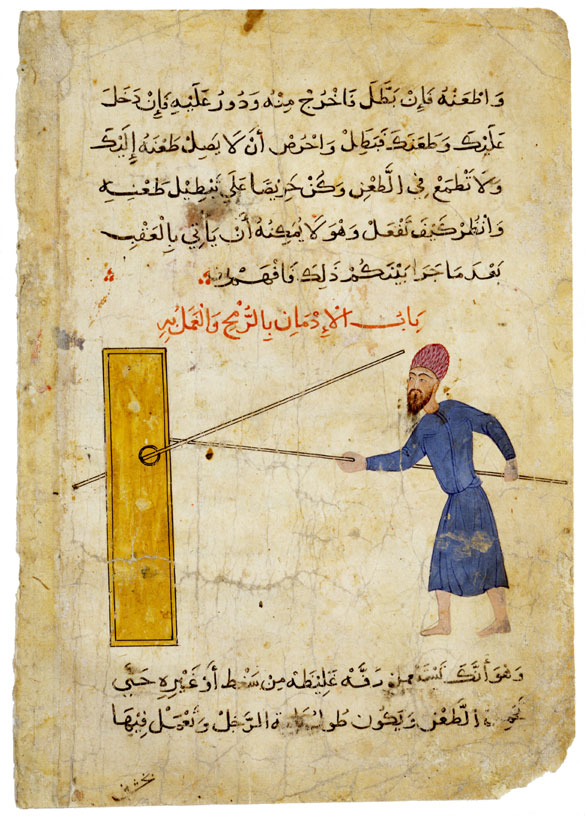 وَاطْعَنْهُ فَإِنْ بَطَّلَ فَاخْرُجْ مِنْهُ وَدُورْ عَلَيْهِ فَإِنْ دَخَلَ
عَلَيْكَ وَطَعَنَكَ فَبَطِلْ وَاحْرُصْ أَنْ لَا يَصِلْ طَعْنُهُ إِلَيْكَ
وَلَا تَطْمَعْ فِي الطَّعْنِ وَكُنْ حَرِيصًا عَلَى تَبْطِيْلِ طَعْنِهِ
وَانْظُرْ كَيْفَ تَفْعَلْ وَهُوَ لَا يُمْكِنُهُ أَنْ يَأْتِي بِالْعَقْبِ
بَعْدَ مَا جَرَا بَيْنَكُمْ ذَلِكَ فَافْهَمْ
بَابُ الْإِدْمَانِ بِالرُّمْحِ وَالْعَمَلُ بِهِ
وَهُوَ أَنَّكَ تَسْتَعْمِلْ دَفَّهْ غَلِيظَهْ مِنْ سَنْطٍ أَوْ غَيْرِهِ حَتَّى
الطَّعْنَ وَيَكُونُ طُولُهَا قَامَةَ الرَّجُلِ وَتَعْمَلْ فِيهَا